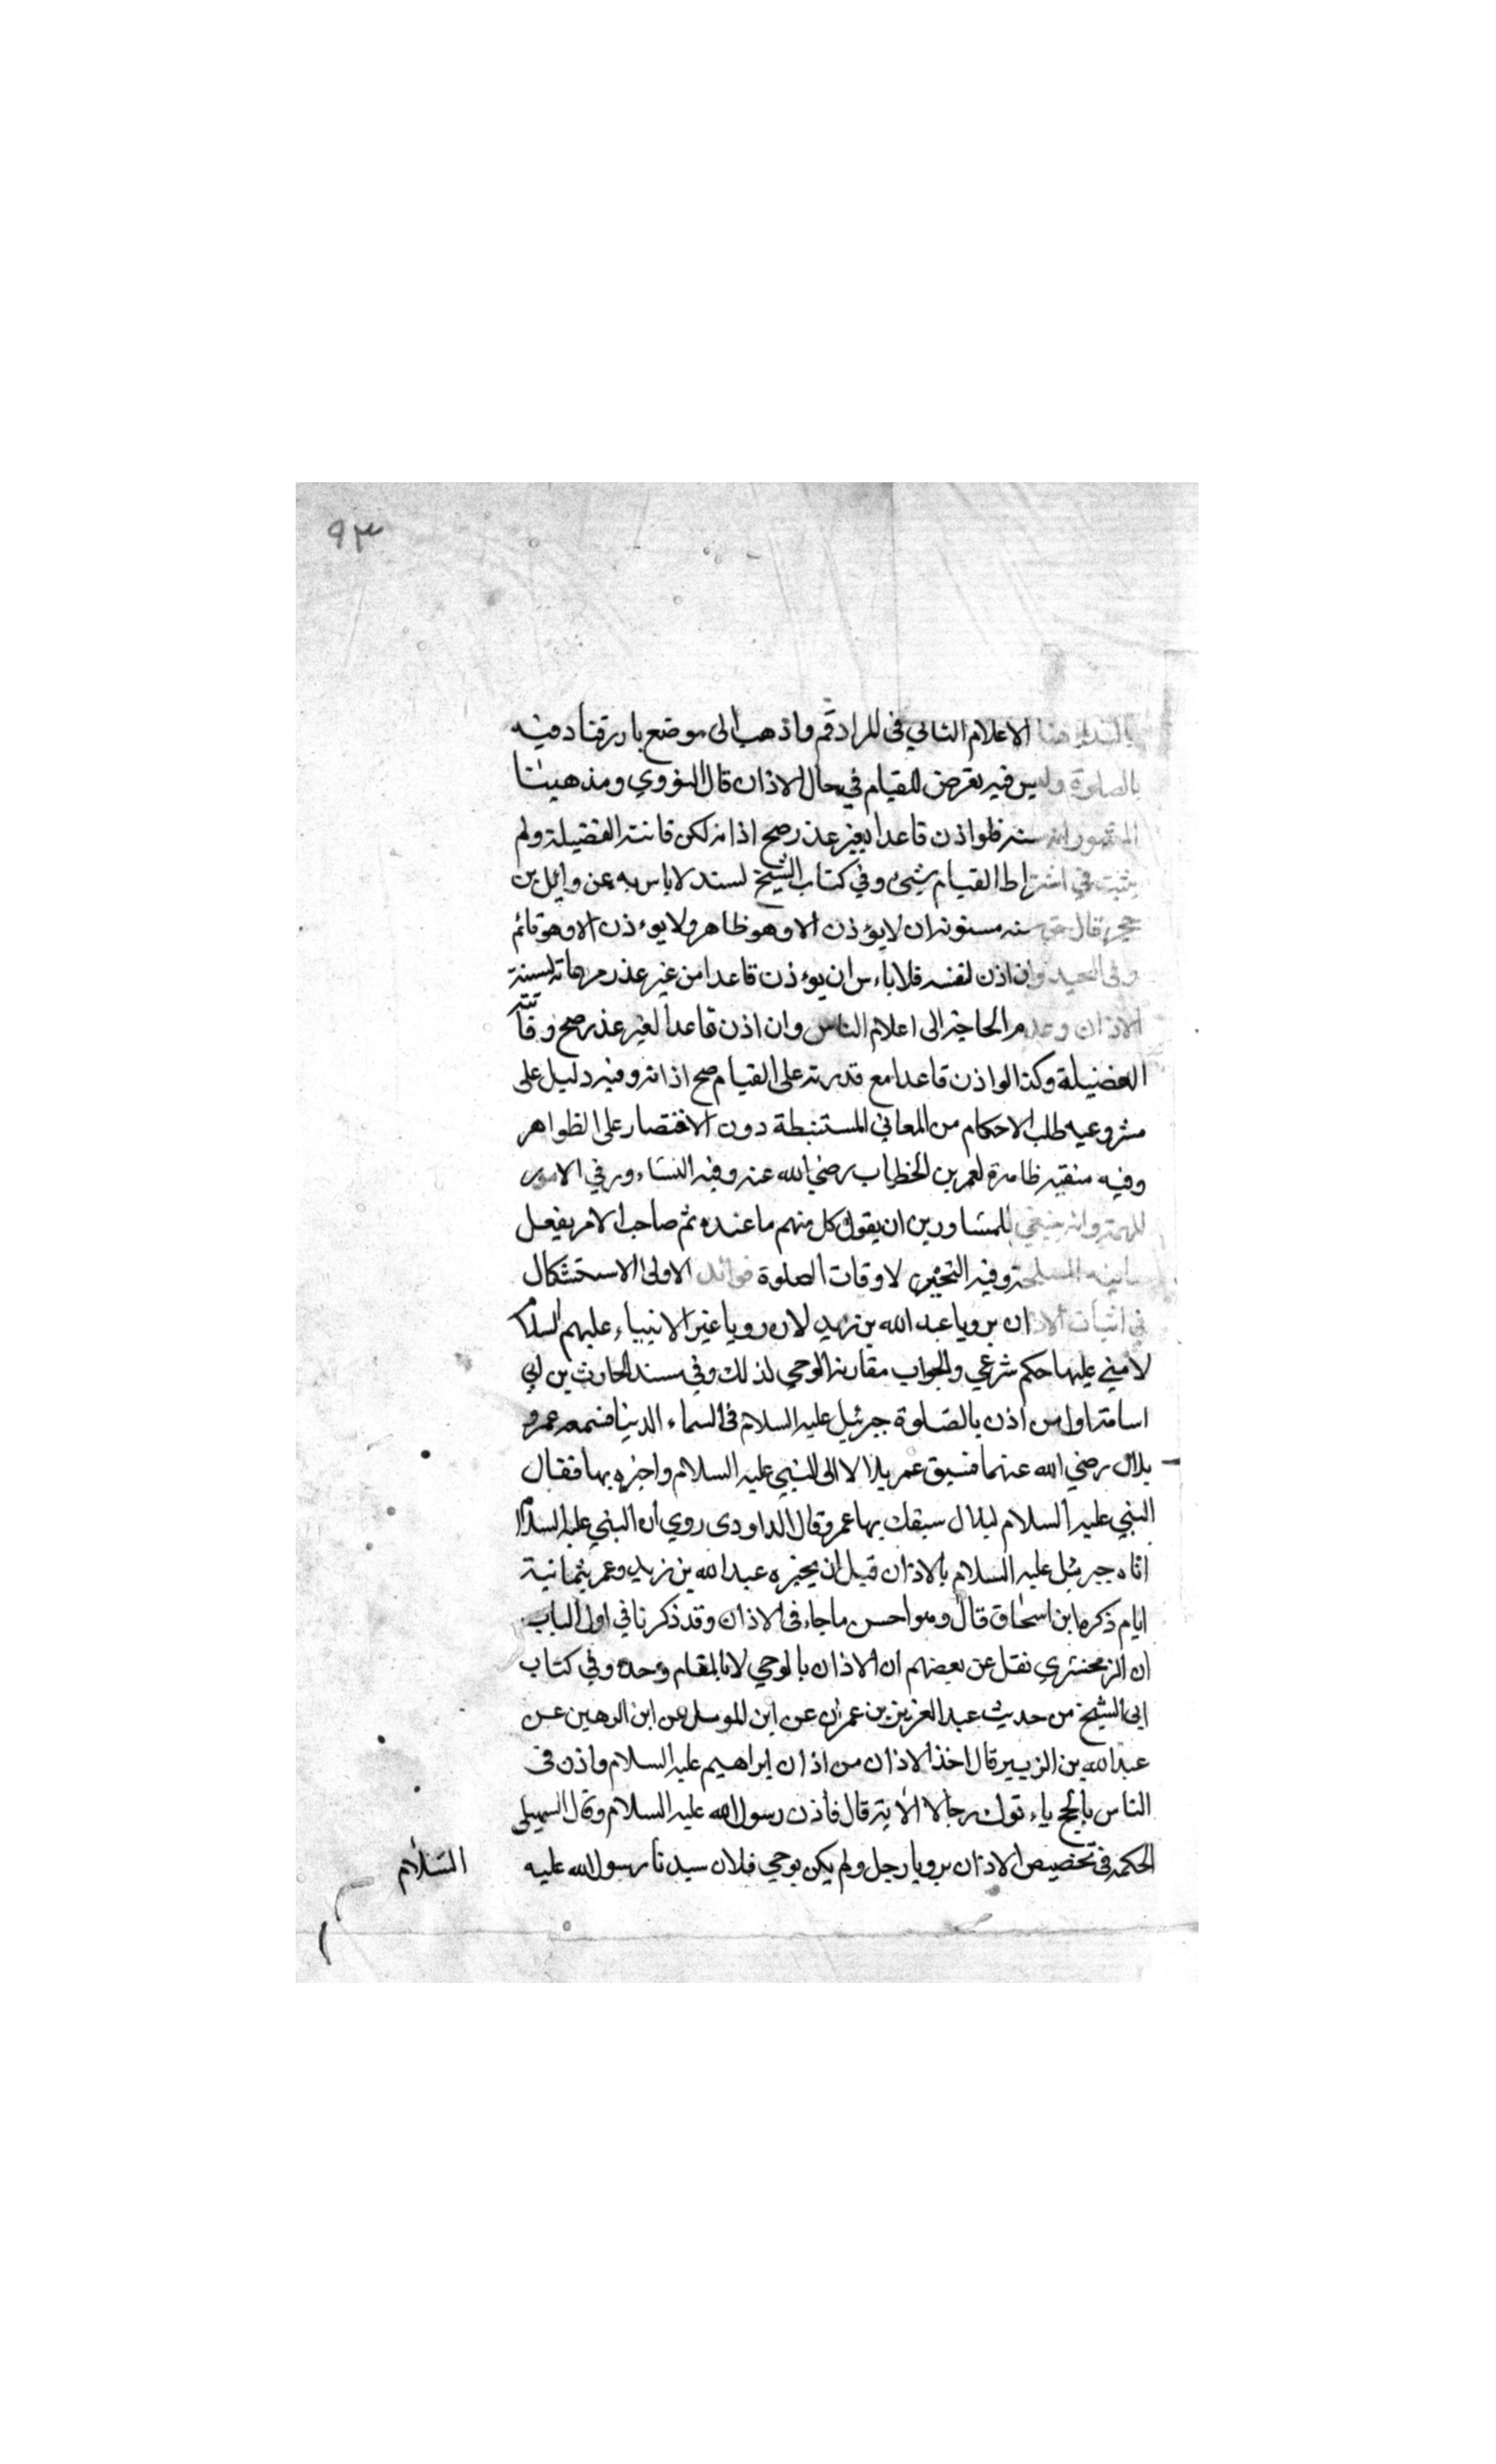 ٩٣
بالنداء هنا الاعلام الثاني في المراد قم واذهب الى موضع بارز فناد فيه
بالصلوة وليس فيه تعرض للقيام في حال الاذان قال النووي ومذهبنا
المشهور انه سنة فلو اذن قاعدا بغير عذر صح اذانه لكن فاتته الفضيلة ولم
يثبت في اشتراط القيام شئ وفي كتاب الشيخ لسند لا باس به عن وايل بن
حجر قال حق سنة مسنونة ان لا يؤذن الا وهو ظاهر ولا يوءذن الا وهو قائم
وفي المحيد وان اذن لنفسه فلا باءس ان يوءذن قاعدا من غير عذر مرعاة لسنة
الاذان وعدم الحاجة الى اعلام الناس وان اذن قاعدا لغير عذر صح وفاتته
الفضيلة وكذا لو اذن قاعدا مع قدرته على القيام صح اذانه وفيه دليل على
مشروعيه طلب الاحكام من المعاني المستنبطة دون الاقتصار على الظواهر
وفيه منقبة ظاهرة لعمر بن الخطاب رضي الله عنه وفيه التشاور في الامور
المهمة وانه ينبغي للمتشاورين ان يقول كل منهم ما عنده ثم صاحب الامر يفعل
ما فيه المصلحة وفيه التحين لاوقات الصلوة فوائد الاولى الاستشكال
في اثبات الاذان برويا عبد الله بن زيد لان رويا غير الانبياء عليهم السلام
لا مبني عليها حكم شرعي والجواب مقارنة الوحي لذلك وفي مسند الحارث بن ابي
اسامة اول من اذن بالصلوة جبرئيل عليه السلام في السماء الدنيا فسمعه عمر و
بلال رضي الله عنهما فسبق عمر بلالا الى النبي عليه السلام واخبره بها فقال
النبي عليه السلام لبلال سبقك بها عمر وقال الداودى روي ان النبي عليه السلام
اتاه جبرئيل عليه السلام بالاذان قبل ان يخبره عبد الله بن زيد وعمر بثمانية
ايام ذكره ابن اسحاق قال وهو احسن ما جاء في الاذان وقد ذكرنا في اول الباب
ان الزمحشري نقل عن بعضهم ان الاذان بالوحي لا بالمقام وحده وفي كتاب
ابي الشيخ من حديث عبد العزيز بن عمران عن ابن الموسل عن ابن الرهين عن
عبد الله بن الزبير قال اخذ الاذان من اذان ابراهيم عليه السلام واذن في
الناس بالحج ياءتوك رجالا الاية قال فأذن رسول الله عليه السلام وقال السهيلى
الحكمة في تخصيص الاذان برويا رجل ولم يكن بوحي فلان سيدنا رسول الله عليه
السلام